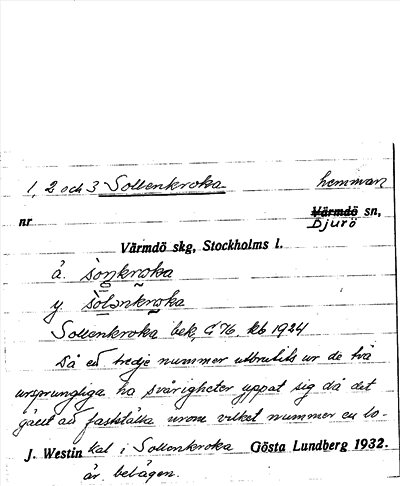 1, 2 och 3 Sollenkroka hemman
nr Värmdö sn,
Djurö
Värmdö skg, Stockholms l.
å. sǫŋkroka
y. sòlənkroka
Sollenkroka bek, G 76, kb 1924
Då ett tredje nummer utbrutits ur de två
ursprungliga ha svårigheter yppat sig då det
gällt att fastställa inom vilket nummer en lo-
J. Westin kal i Sollenkroka Gösta Lundberg 1932.
är belägen.